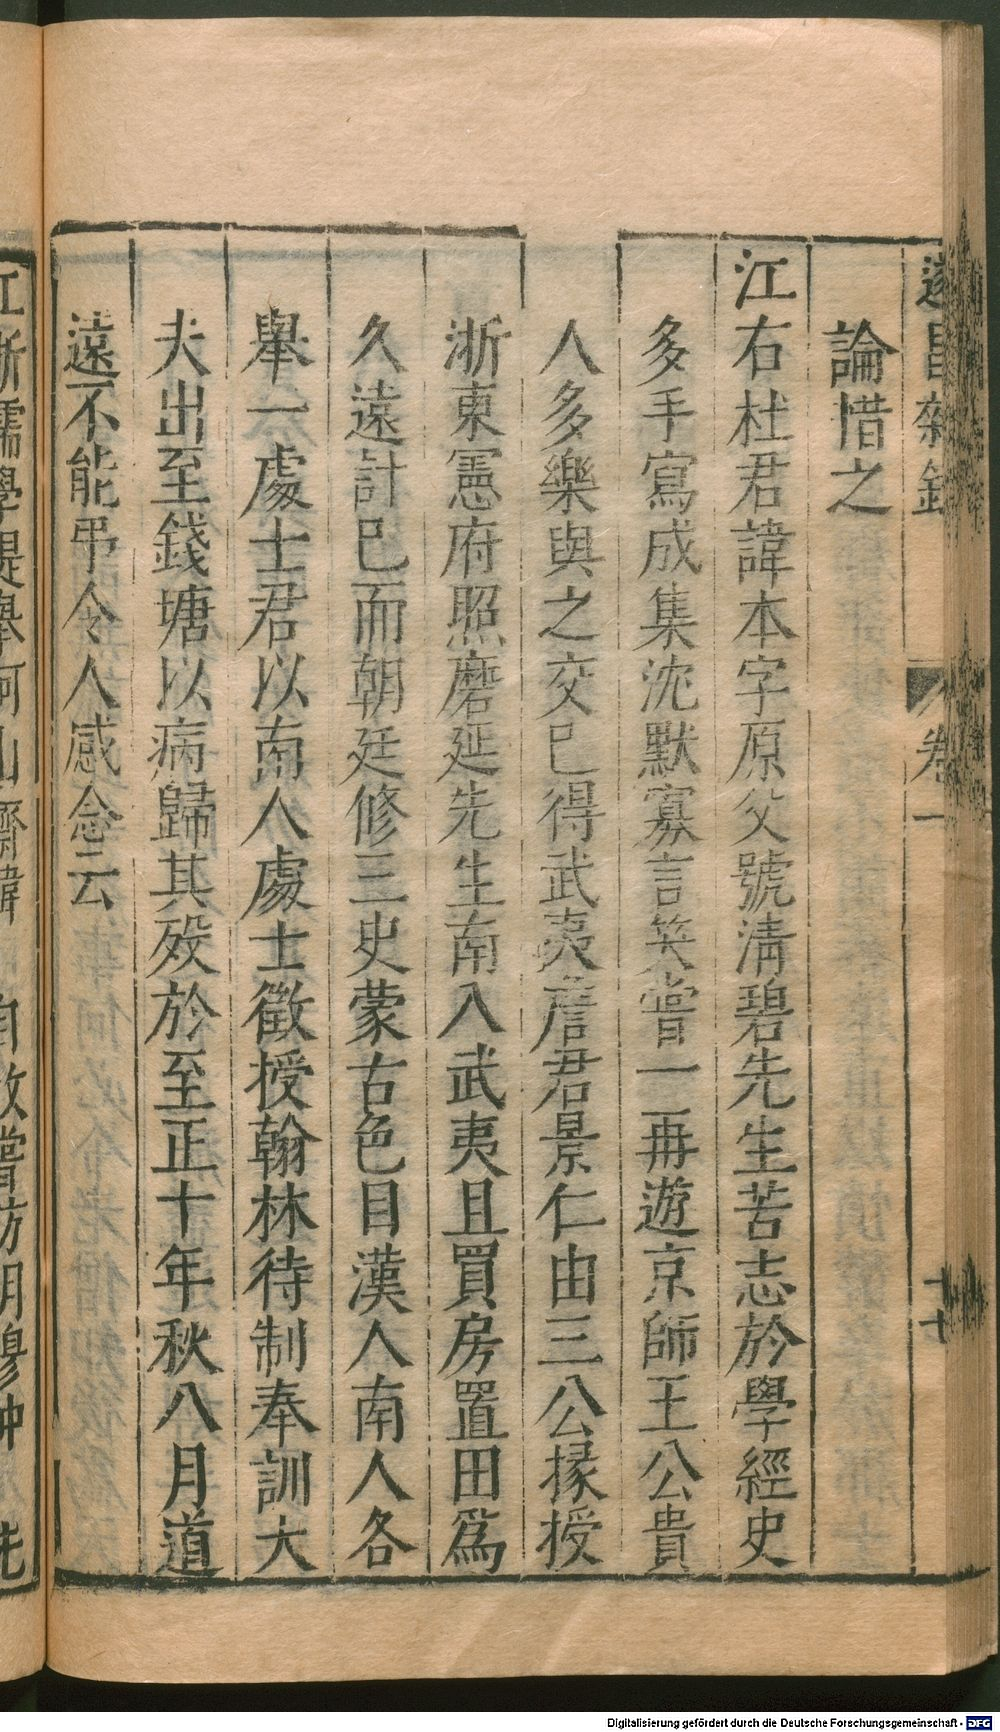 遂昌雜錄
卷一
論惜之
江右杜君諱本字原父號淸碧先生苦志於學經史
多手寫成集沈默寡言笑嘗一再遊京師王公貴
人多樂與之交已得武夷詹君景仁由三公掾授
浙東憲府照磨延先生南入武夷且買房置田爲
久遠計已而朝廷修三史蒙古色目漢人南人各
舉一處士君以南人處士徵授翰林待制奉訓大
夫出至錢塘以病歸其歿於至正十年秋八月道
遠不能弔令人感念云
Digitalisierung gefördert durch die Deutsche Forschungsgemeinschaft - DFG